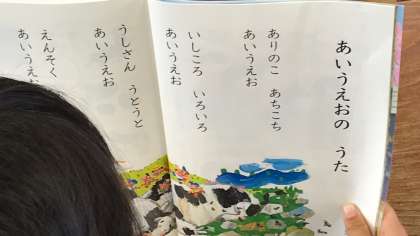 あいうえおの うた
ありのこ あちこち
あいうえお
いしころ いろいろ
あいうえお
うしさん うとうと
あいうえお
えんそく
あいうえお